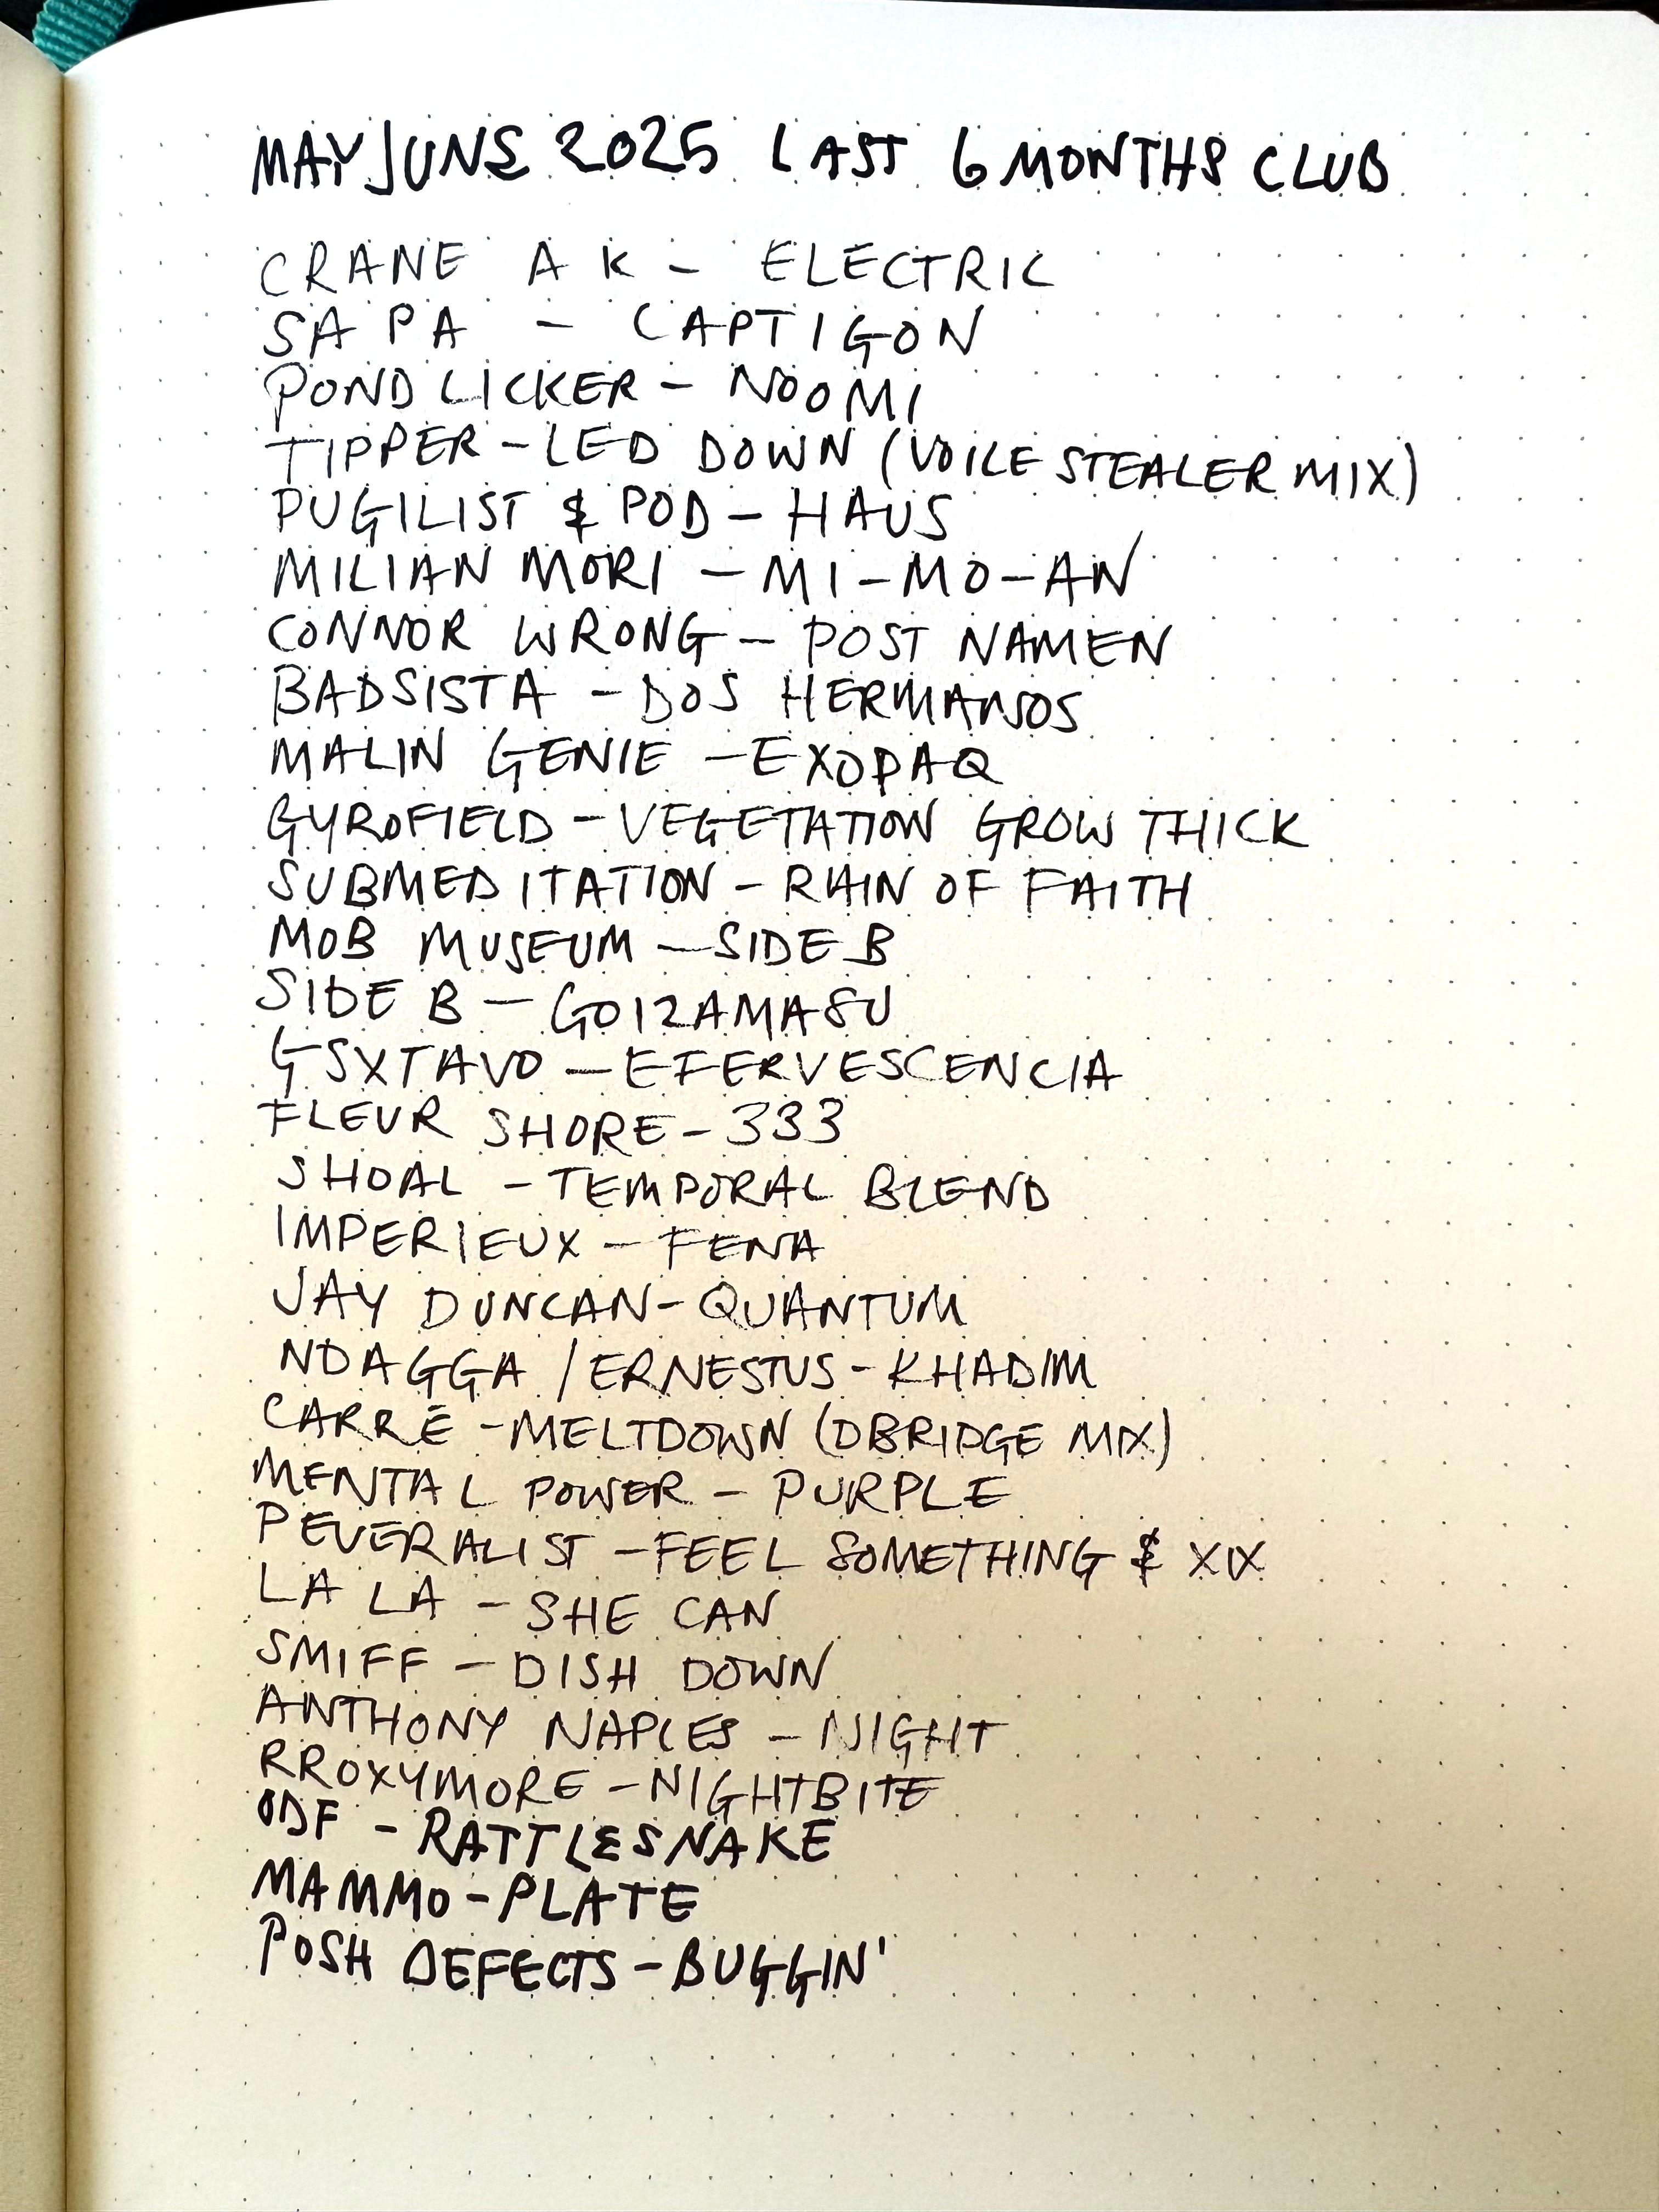 MAY JUNE 2025 LAST 6 MONTHS CLUB
CRANE AK - ELECTRIC
SA PA - CAPTIGON
POND LICKER - NOOMI
TIPPER - LED DOWN (VOICE STEALER MIX)
PUGILIST & POD - HAUS
MILIAN MORI - MI-MO-AN
CONNOR WRONG - POST NAMEN
BADSISTA - DOS HERMANOS
MALIN GENIE - EXOPAQ
GYROFIELD - VEGETATION GROW THICK
SUBMEDITATION - RAIN OF FAITH
MOB MUSEUM - SIDE B
SIDE B - GOIZAMASU
GSXTAVO - EFERVESCENCIA
FLEUR SHORE - 333
SHOAL - TEMPORAL BLEND
IMPERIEUX - FENA
JAY DUNCAN - QUANTUM
NDAGGA / ERNESTUS - KHADIM
CARRÉ - MELTDOWN (DBRIDGE MIX)
MENTAL POWER - PURPLE
PEVERALIST - FEEL SOMETHING & XIX
LA LA - SHE CAN
SMIFF - DISH DOWN
ANTHONY NAPLES - NIGHT
RROXYMORE - NIGHTBITE
ODF - RATTLESNAKE
MAMMO - PLATE
POSH DEFECTS - BUGGIN'